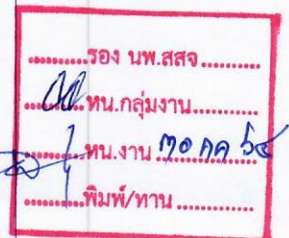 ..........รอง นพ.สสจ..........
..........หน.กลุ่มงาน..........
..........หน.งาน ๓๐ กค ๖๔
..........พิมพ์/ทาน..........